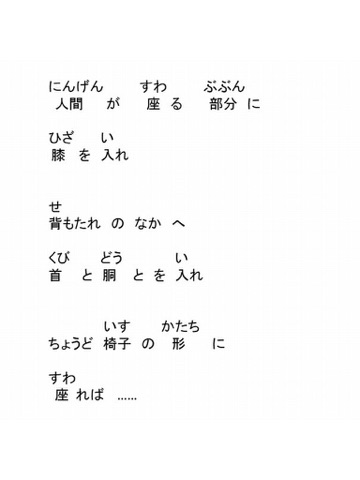 にんげん すわ ぶぶん
人間 が 座 る 部分 に
ひざ い
膝 を 入れ
せ
背もたれ の なか へ
くび どう い
首 と 胴 と を 入れ
いす かたち
ちょうど 椅子 の 形 に
すわ
座 れば ……